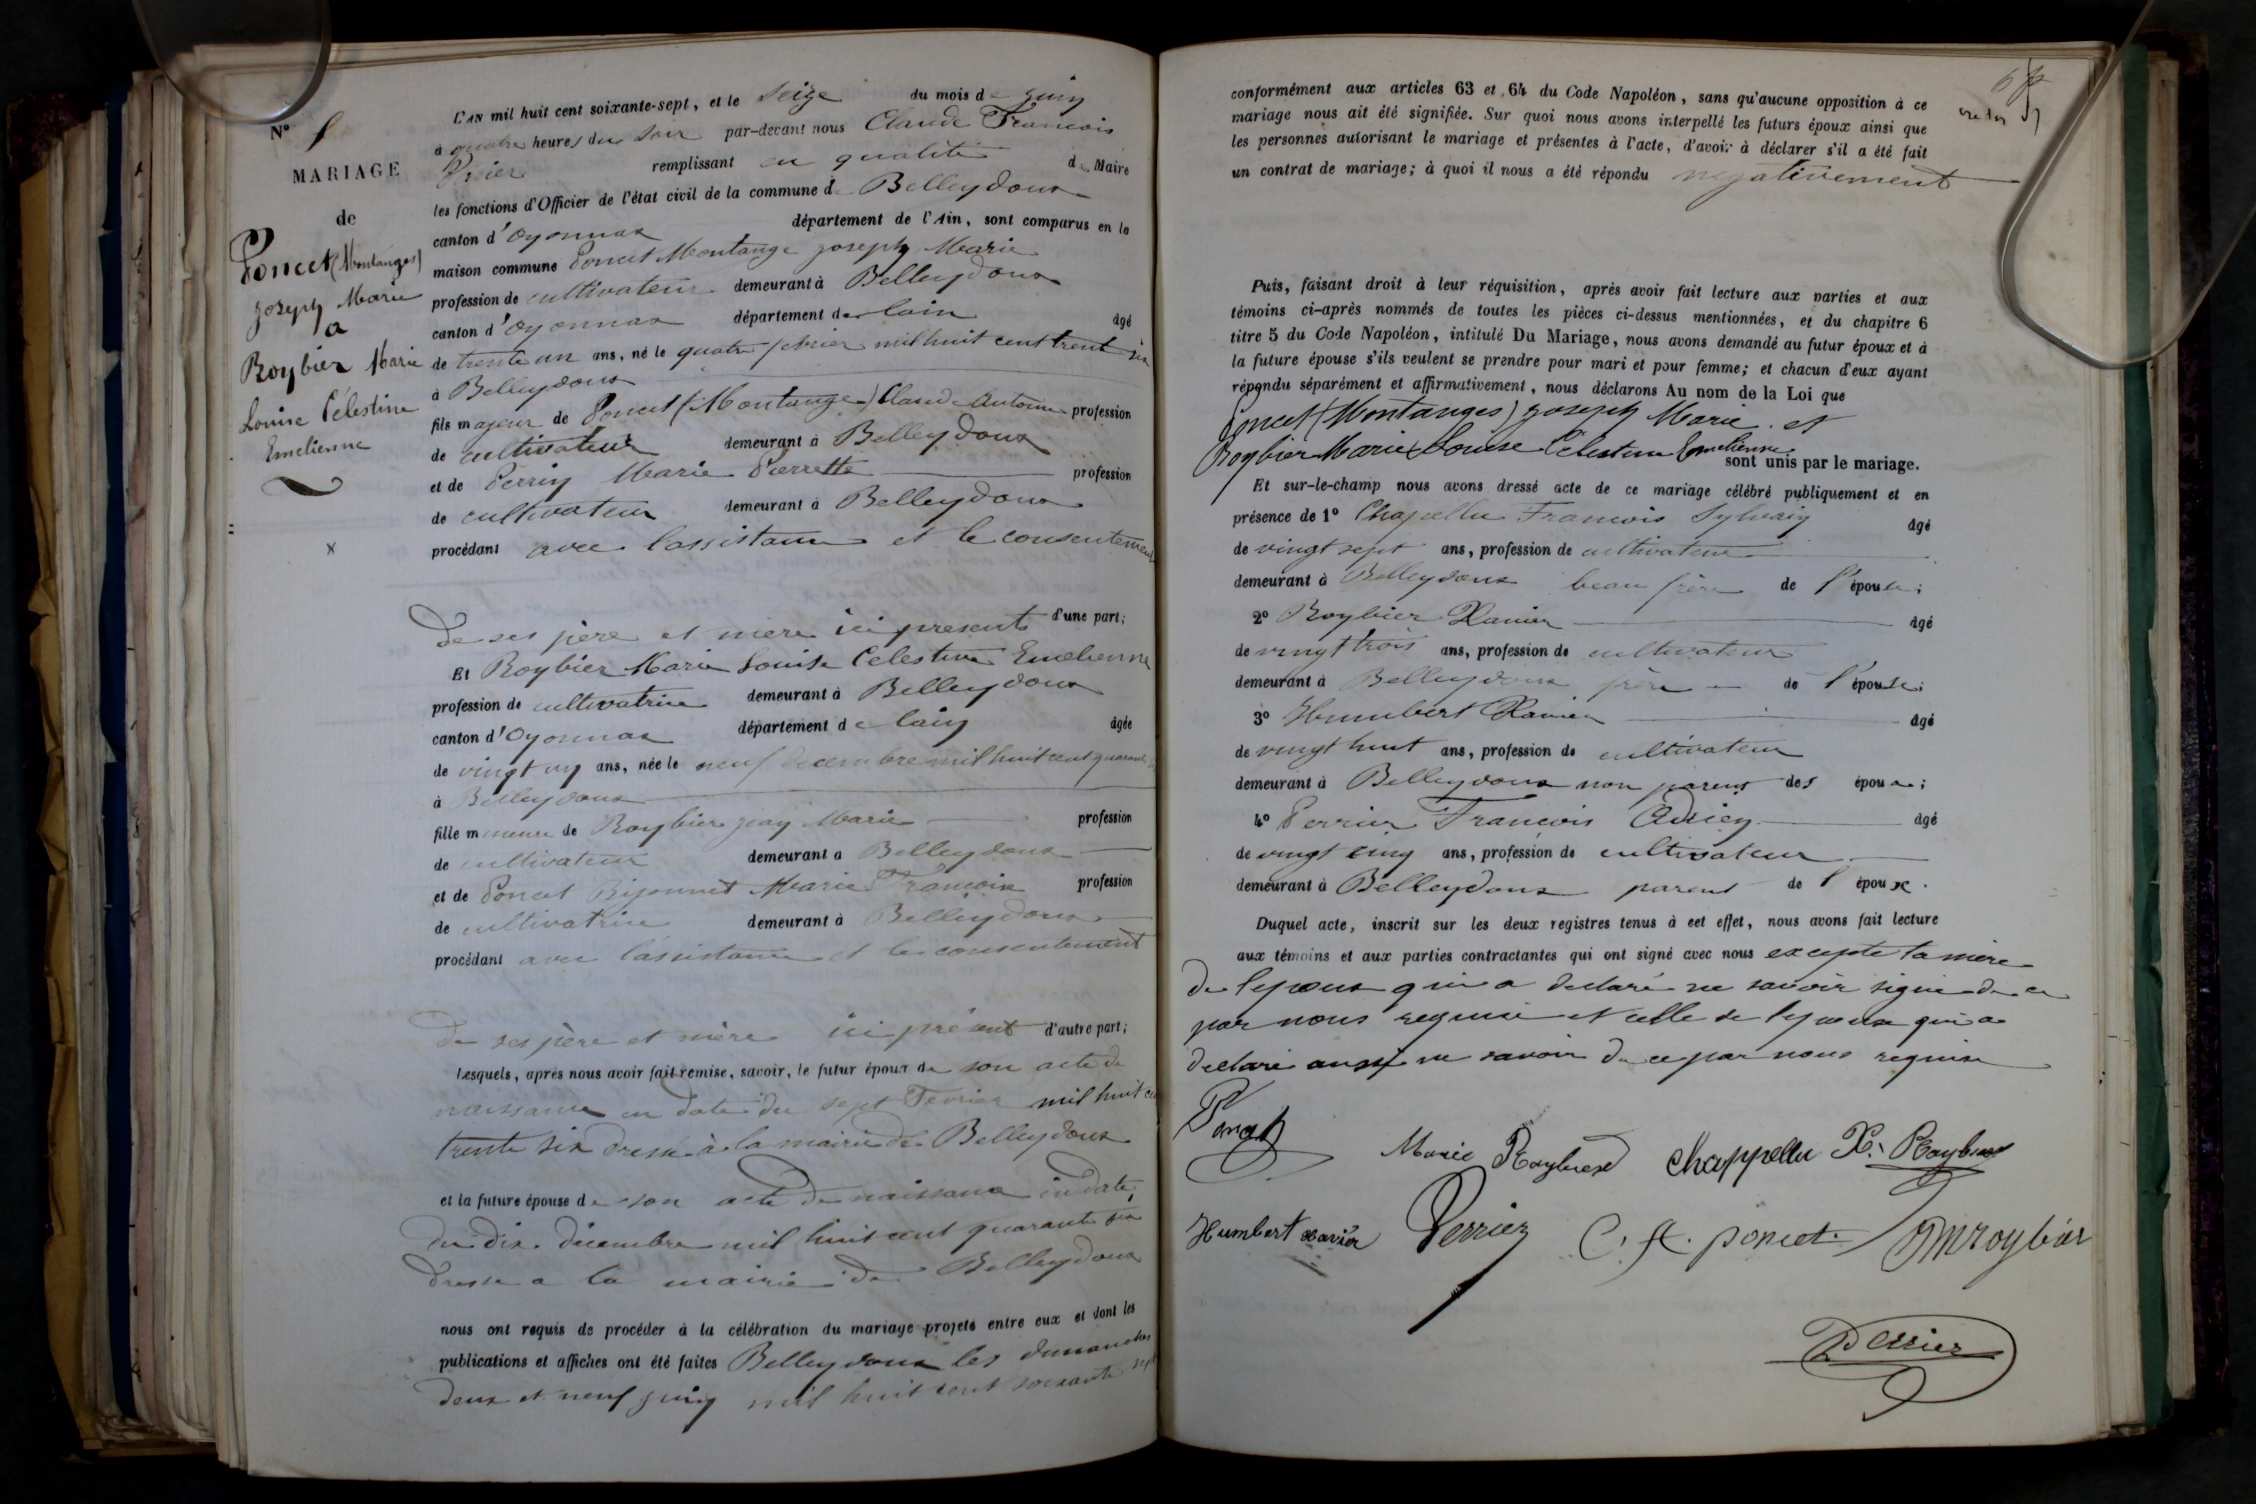 N° 8
MARIAGE
de
Poncet (Montanges)
Joseph Marie
a
Roybier Marie
Louise Célestine
Emelienne
L'AN mil huit cent soixante-sept, et le Seize du mois de juin
à quatre heures du soir par-devant nous Claude François
remplissant en qualité de Maire
les fonctions d'Officier de l'état civil de la commune de Belleydoux
canton d'Oyonnax département de l'Ain, sont comparus en la
maison commune Poncet Montange Joseph Marie
profession de cultivateur demeurant à Belleydoux
canton d'Oyonnax département de lain âgé
de trente un ans, né le quatre fevrier mil huit cent trente six
à Belleydoux
fils majeur de Poncet (Montange) Claude Antoine profession
de cultivateur demeurant à Belleydoux
et de Perrin Marie Pierrette profession
de cultivateur demeurant à Belleydoux
procédant avec lassistance et le consentement
de ses père et mère ici présents d'une part;
Et Roybier Marie Louise Celestine Emelienne
profession de cultivatrice demeurant à Belleydoux
canton d'Oyonnax département de lain âgée
de vingt un ans, née le neuf decembre mil huit cent quarante
à Belleydoux
fille mineure de Roybier jean Marie profession
de cultivateur demeurant à Belleydoux
et de Poncet Bijonnet Marie Françoise profession
de cultivatrice demeurant à Belleydoux
procédant avec lassistance et le consentement
de ses père et mère ici présent d'autre part;
Lesquels, après nous avoir fait remise, savoir, le futur époux de son acte de
naissance en date du sept Fevrier mil huit cent
trente six dressé à la mairie de Belleydoux
et la future épouse de son acte de naissance en date
du dix decembre mil huit cent quarante six
dressé a la mairie de Belleydoux
nous ont requis de procéder à la célébration du mariage projeté entre eux et dont les
publications et affiches ont été faites Belleydoux les dimanches
deux et neuf juin mil huit cent soixante sept
conformément aux articles 63 et 64 du Code Napoléon, sans qu'aucune opposition à ce
mariage nous ait été signifiée. Sur quoi nous avons interpellé les futurs époux ainsi que
les personnes autorisant le mariage et présentes à l'acte, d'avoir à déclarer s'il a été fait
un contrat de mariage; à quoi il nous a été répondu négativement
Puis, faisant droit à leur réquisition, après avoir fait lecture aux parties et aux
témoins ci-après nommés de toutes les pièces ci-dessus mentionnées, et du chapitre 6
titre 5 du Code Napoléon, intitulé Du Mariage, nous avons demandé au futur époux et à
la future épouse s'ils veulent se prendre pour mari et pour femme; et chacun d'eux ayant
répondu séparément et affirmativement, nous déclarons Au nom de la Loi que
Poncet (Montanges) Joseph Marie et
Roybier Marie Louise Célestine Emelienne
sont unis par le mariage.
Et sur-le-champ nous avons dressé acte de ce mariage célébré publiquement et en
présence de 1° Chapellu François Sylvain âgé
de vingt sept ans, profession de cultivateur
demeurant à Belleydoux beau frère de l'épouse;
2° Roybier Xavier âgé
de vingt trois ans, profession de cultivateur
demeurant à Belleydoux frère de l'épouse;
3° Humbert Xavier âgé
de vingt huit ans, profession de cultivateur
demeurant à Belleydoux non parent des époux;
4° Perrier François âgé
de vingt cinq ans, profession de cultivateur
demeurant à Belleydoux parent de l'époux.
Duquel acte, inscrit sur les deux registres tenus à cet effet, nous avons fait lecture
aux témoins et aux parties contractantes qui ont signé avec nous excepté la mère
de lepoux qui a declaré ne savoir signe de ce
par nous requise et celle de lepouse qui a
declaré aussi ne savoir de ce par nous requise
Poncet
Marie Roybier Chappellu X. Roybier
Humbert xavier Perrier C. A. poncet JMroybier
Perrier